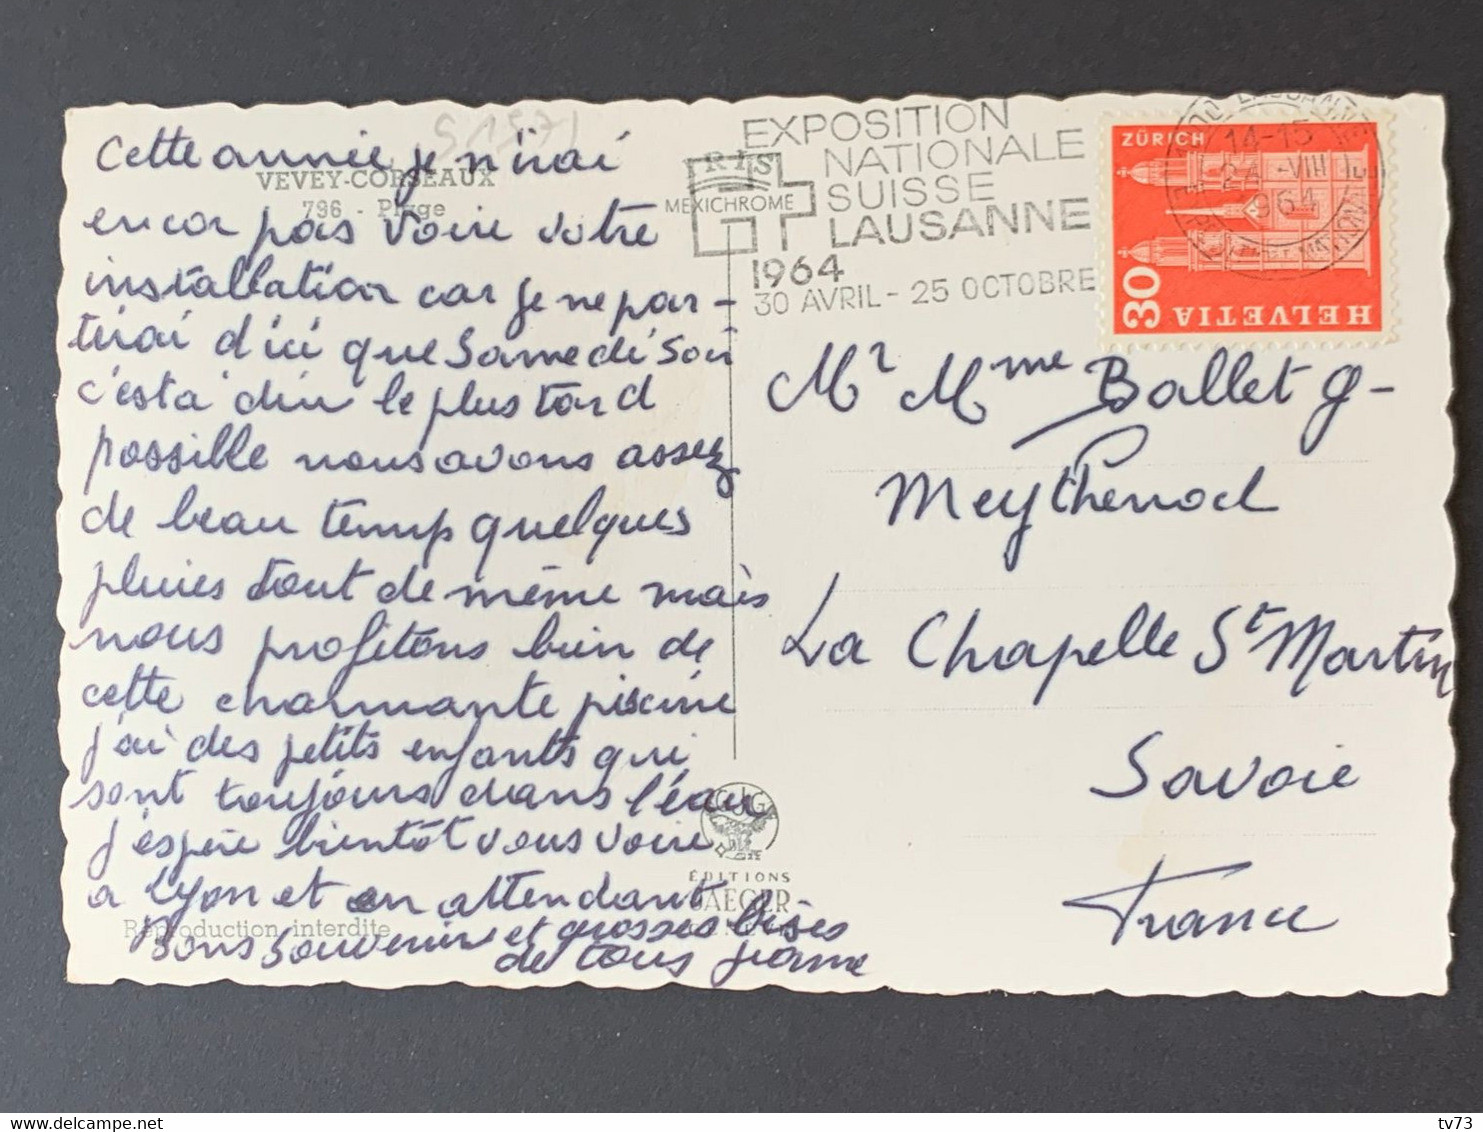 S1371
VEVEY-CORSEAUX
796 - Plage
Cette année je n'irai
encor pas voire votre
installation car je ne par-
tirai d'ici que Samedi Soir
c'est a dire le plus tard
possible nous avons assez
de beau temp quelques
pluies tout de même mais
nous profitons bien de
cette charmante piscine
j'ai des petits enfants qui
sont toujours dans l'eau
j'espère bientôt vous voire
a Lyon et en attendant
Bons Souvenirs et grosses bises
de tous
Reproduction interdite
MEXICHROME
EXPOSITION
NATIONALE
SUISSE
LAUSANNE
1964
30 AVRIL - 25 OCTOBRE
14-15
24 -VIII
964
ZÜRICH
30
HELVETIA
Mr Mme Ballet g-
Meythenod
La Chapelle St Martin
Savoie
France
GJG
ÉDITIONS
JAEGER
tv73